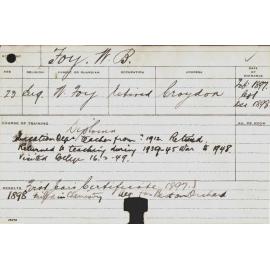 Foy. W. B.
AGE RELIGION PARENT OR GUARDIAN OCCUPATION ADDRESS DATE OF ENTRANCE
23 W Foy retired Croydon Feb. 1897.
Dec 1898
COURSE OF TRAINING
Diploma
Education Dept Teacher from ? 1912. Retired
Returned to teaching during 1939-45 War to 1948
Visited College 16.2.49.
RESULTS First Class Certificate 1897.
1898 in Chemistry